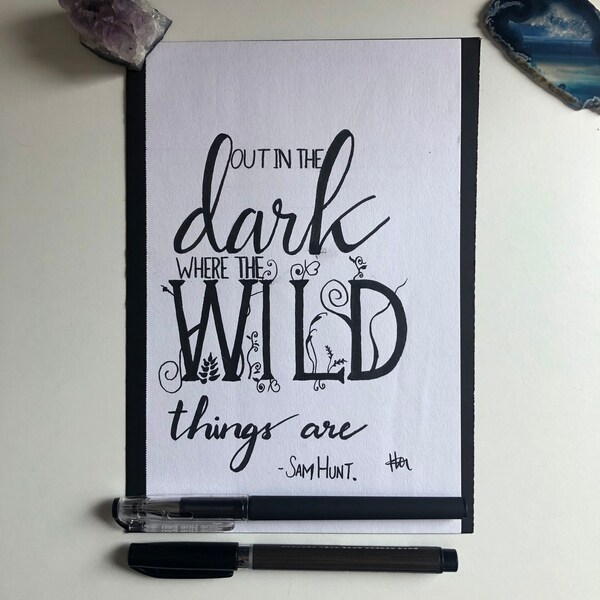 OUT IN THE
dark
WHERE THE
WILD
things are
-SAM HUNT.